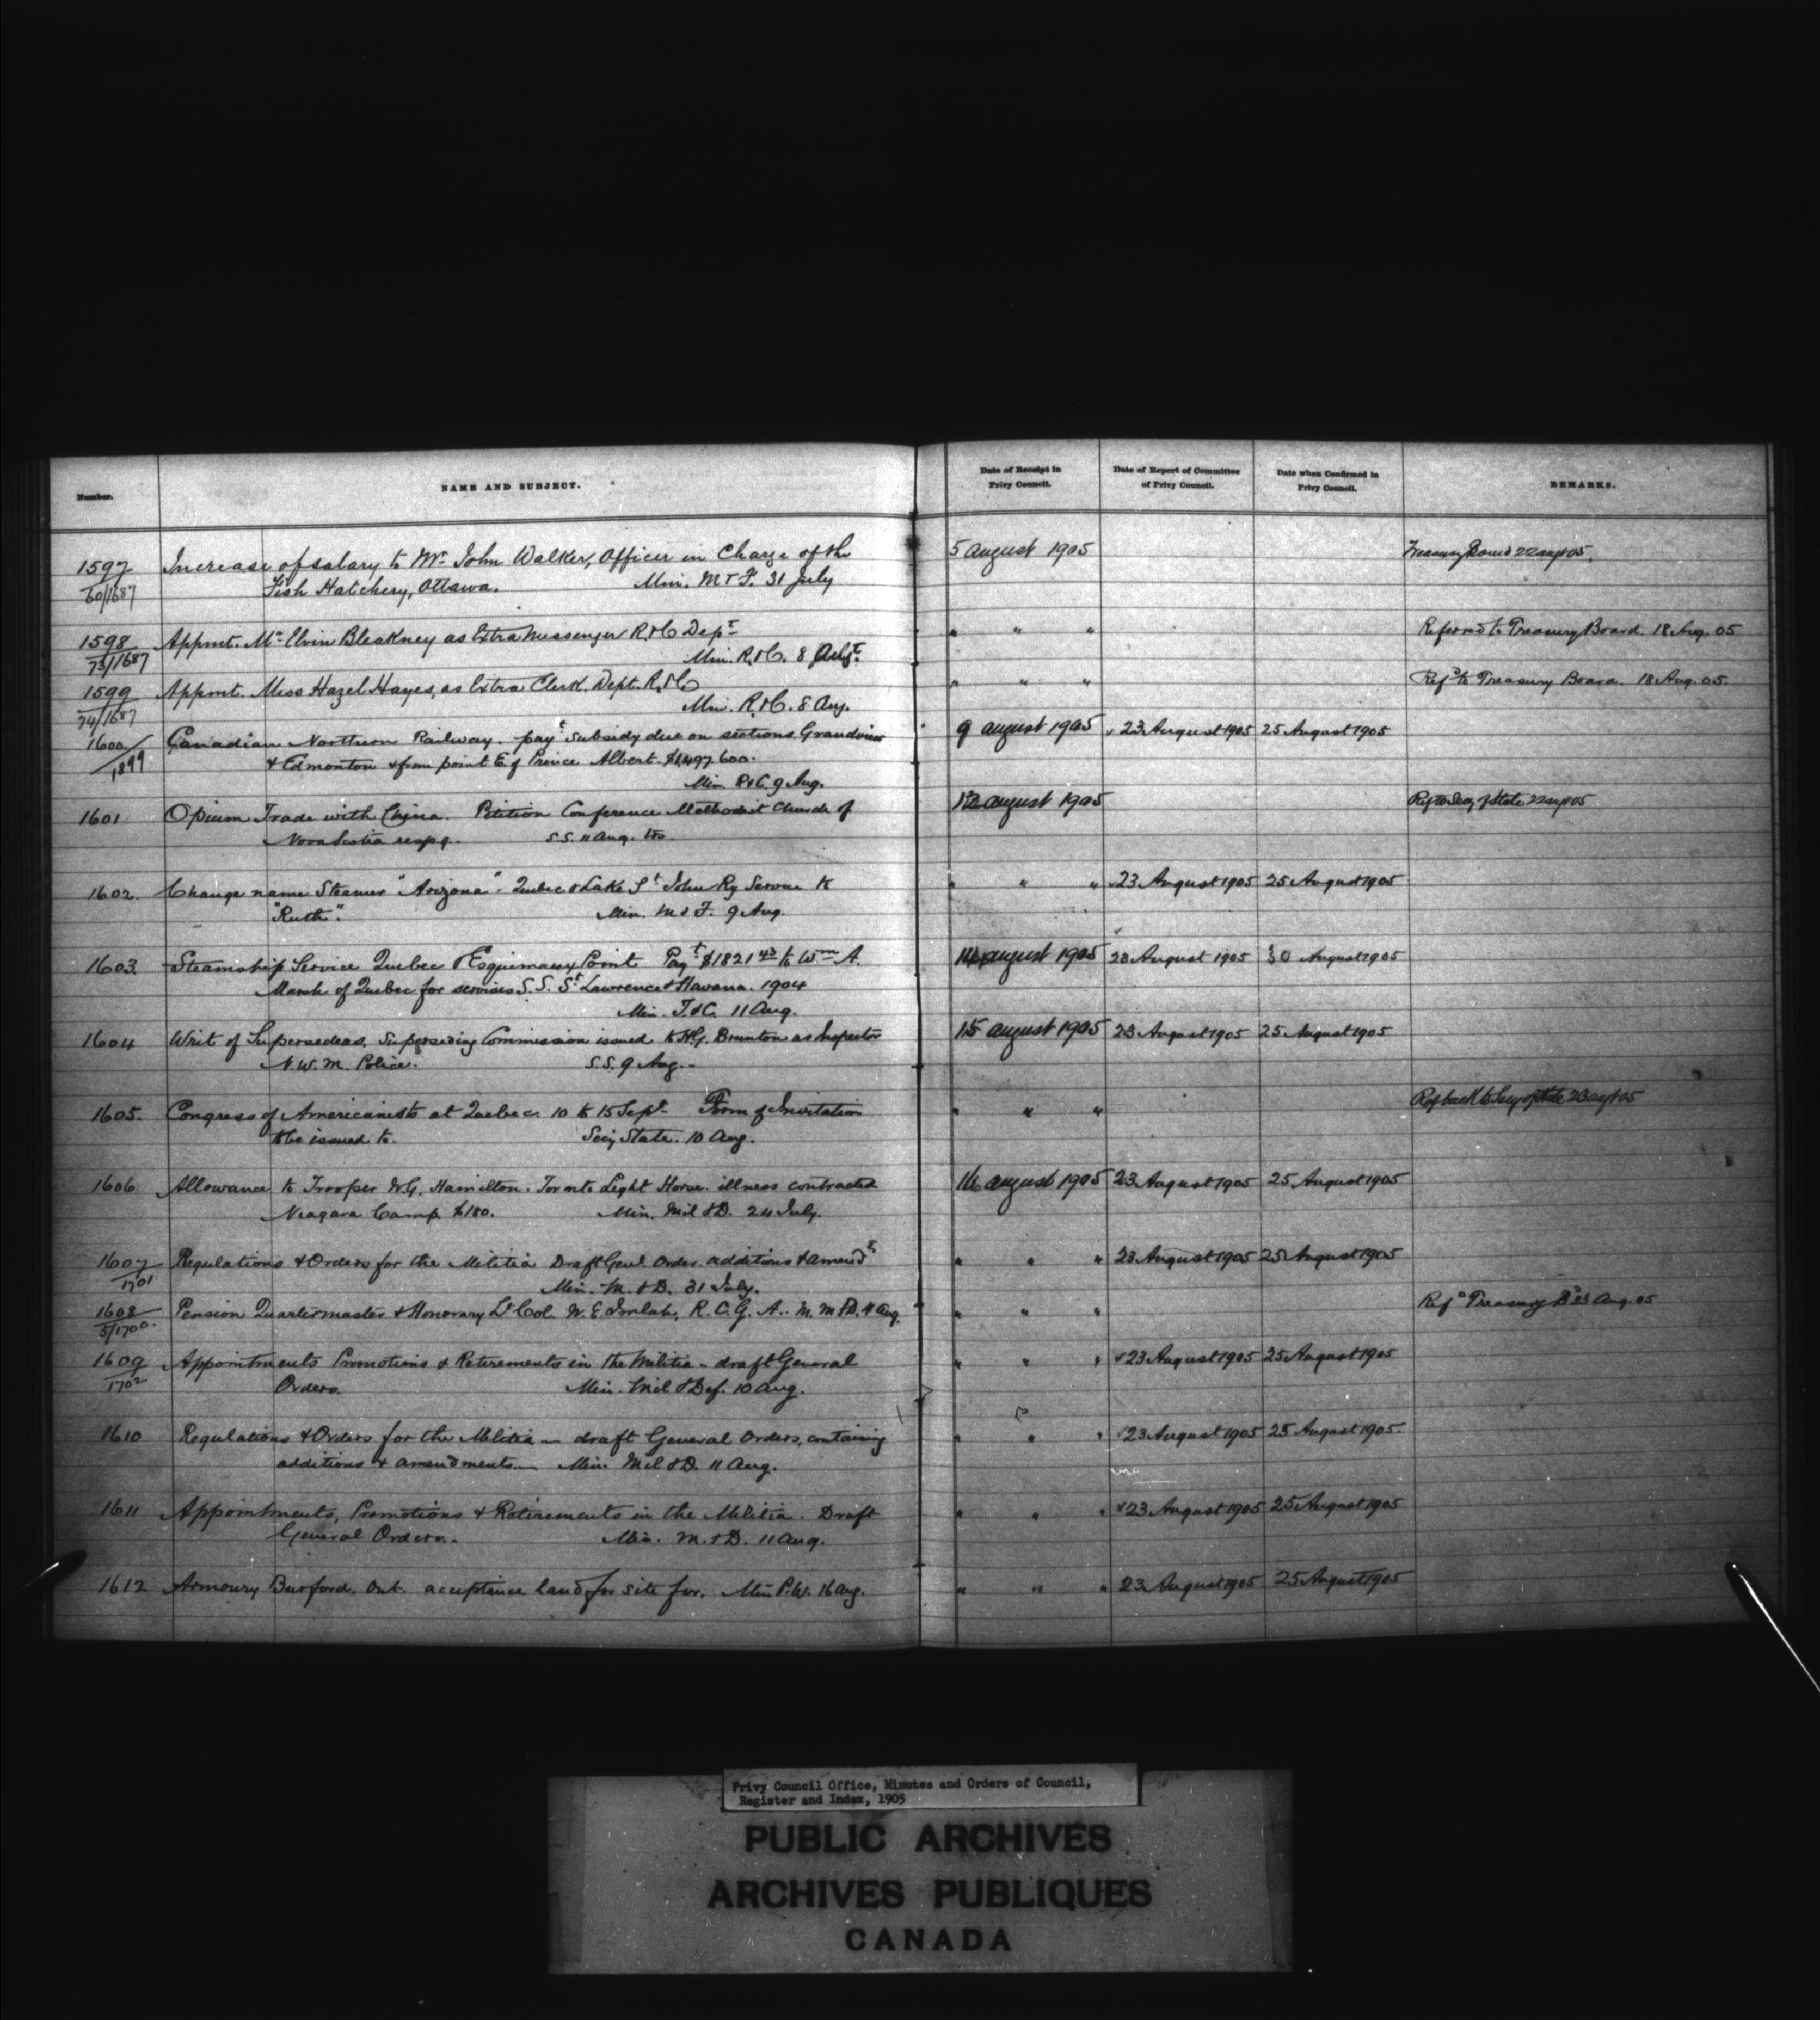 Number.
NAME AND SUBJECT.
Date of Receipt in
Privy Council.
Date of Report of Committee
of Privy Council.
Date when Confirmed in
Privy Council.
REMARKS.
1597 Increase of salary to Mr. John Walker, Officer in Charge of the 5 August 1905 Treasury Board 22 Augt 05.
60/1687 Fish Hatchery, Ottawa. Min. M & F. 31 July
1598 Appmt. Mr Elvin Bleakney as Extra Messenger R. & C Dept " " " Referred to Treasury Board. 18 Aug. 05
73/1687 Min. R. & C. 8 Augt.
1599 Appmt. Miss Hazel Hayes, as Extra Clerk. Dept. R. & C " " " Refd to Treasury Board. 18 Aug. 05.
74/1687 Min. R. & C. 8 Aug.
1600/1899 Canadian Northern Railway. payt subsidy due on sections Grandview 9 August 1905 23 August 1905 25 August 1905
& Edmonton & from point E of Prince Albert. $1,497,600.
Min R & C 9 Aug.
1601 Opium Trade with China. Petition Conference Methodist Church of August 1905 Ref to Secy of State 22 Augt 05
Nova Scotia respg. S.S. 11 Aug.
1602. Change name Steamer "Arizona". Quebec & Lake St John Ry Service to " " " 23 August 1905 25 August 1905
"Ruth". Min. M & F. 9 Aug.
1603. Steamship Service Quebec & Esquimaux Point Payt $1821 43 to Wm A. 14 August 1905 23 August 1905 30 August 1905
Marsh of Quebec for services S. S. St Lawrence & Havana. 1904
Min. T & C. 11 Aug.
1604 Writ of Supersedeas, Superseding Commission issued to H.G. Brunton as Inspector 15 August 1905 23 August 1905 25 August 1905
N. W. M. Police. S.S. 9 Aug.
1605. Congress of Americanists at Quebec. 10 to 15 Sept. Form of Invitation " " " Ref back to Secy of State 23 Augt 05
to be issued to. Secy State. 10 Aug.
1606 Allowance to Trooper W.G. Hamilton. Toronto Light Horse. illness contracted 16 August 1905 23 August 1905 25 August 1905
Niagara Camp $180. Min. Mil & D. 24 July.
1607 Regulations & Orders for the Militia Draft Genl. Order. additions & amendts " " " 23 August 1905 25 August 1905
1701 Min. M. & D. 31 July.
1608 Pension Quartermaster & Honorary Lt Col. W. E. Imlah, R. C. G. A. M. M & D. 4 Aug. " " " Refd Treasury Bd 23 Aug. 05
5/1700.
1609 Appointments Promotions & Retirements in the Militia - draft General " " " 23 August 1905 25 August 1905
1702 Orders. Min. Mil & Def. 10 Aug.
1610 Regulations & Orders for the Militia - draft General Orders, containing " " " 23 August 1905 25 August 1905.
additions & amendments. Min. Mil & D. 11 Aug.
1611 Appointments, Promotions & Retirements in the Militia. Draft " " " 23 August 1905 25 August 1905
General Orders. Min. M. & D. 11 Aug.
1612 Armoury Burford. Ont. acceptance land for site for. Min P.W. 16 Aug. " " " 23 August 1905 25 August 1905
Privy Council Office, Minutes and Orders of Council,
Register and Index, 1905
PUBLIC ARCHIVES
ARCHIVES PUBLIQUES
CANADA